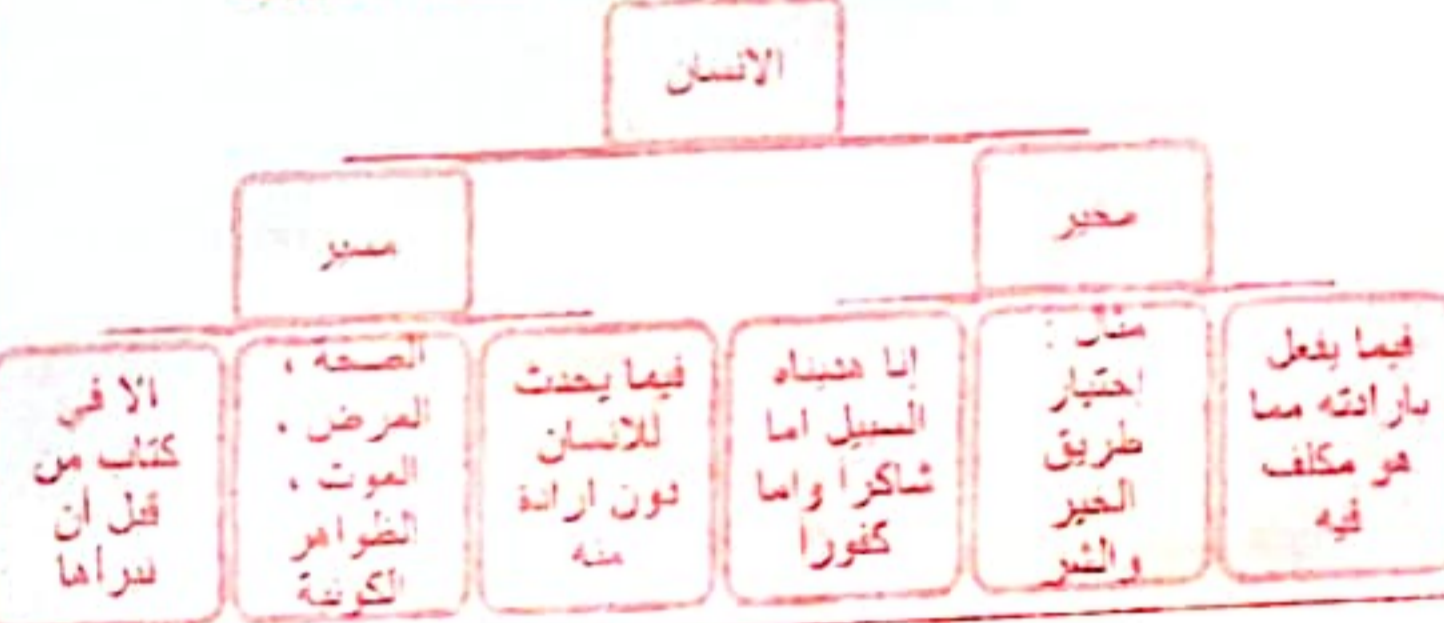 الانسان
مخير
مسير
فيما يفعل
بارادته مما
هو مكلف
فيه
مثال :
اختيار
طريق
الخير
والشر
إنا هديناه
السبيل اما
شاكرا واما
كفورا
فيما يحدث
للانسان
دون ارادة
منه
الصحة ،
المرض ،
الموت ،
الظواهر
الكونية
الا في
كتاب من
قبل أن
نبرأها